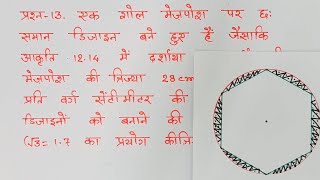 प्रश्न-13. एक गोल मेज़पोश पर छः
समान डिजाइन बने हुए हैं जैसाकि
आकृति 12.14 में दर्शाया
मेज़पोश की त्रिज्या 28 cm
प्रति वर्ग सेंटीमीटर की
डिजाइनों को बनाने की
(√3 = 1.7 का प्रयोग कीजि